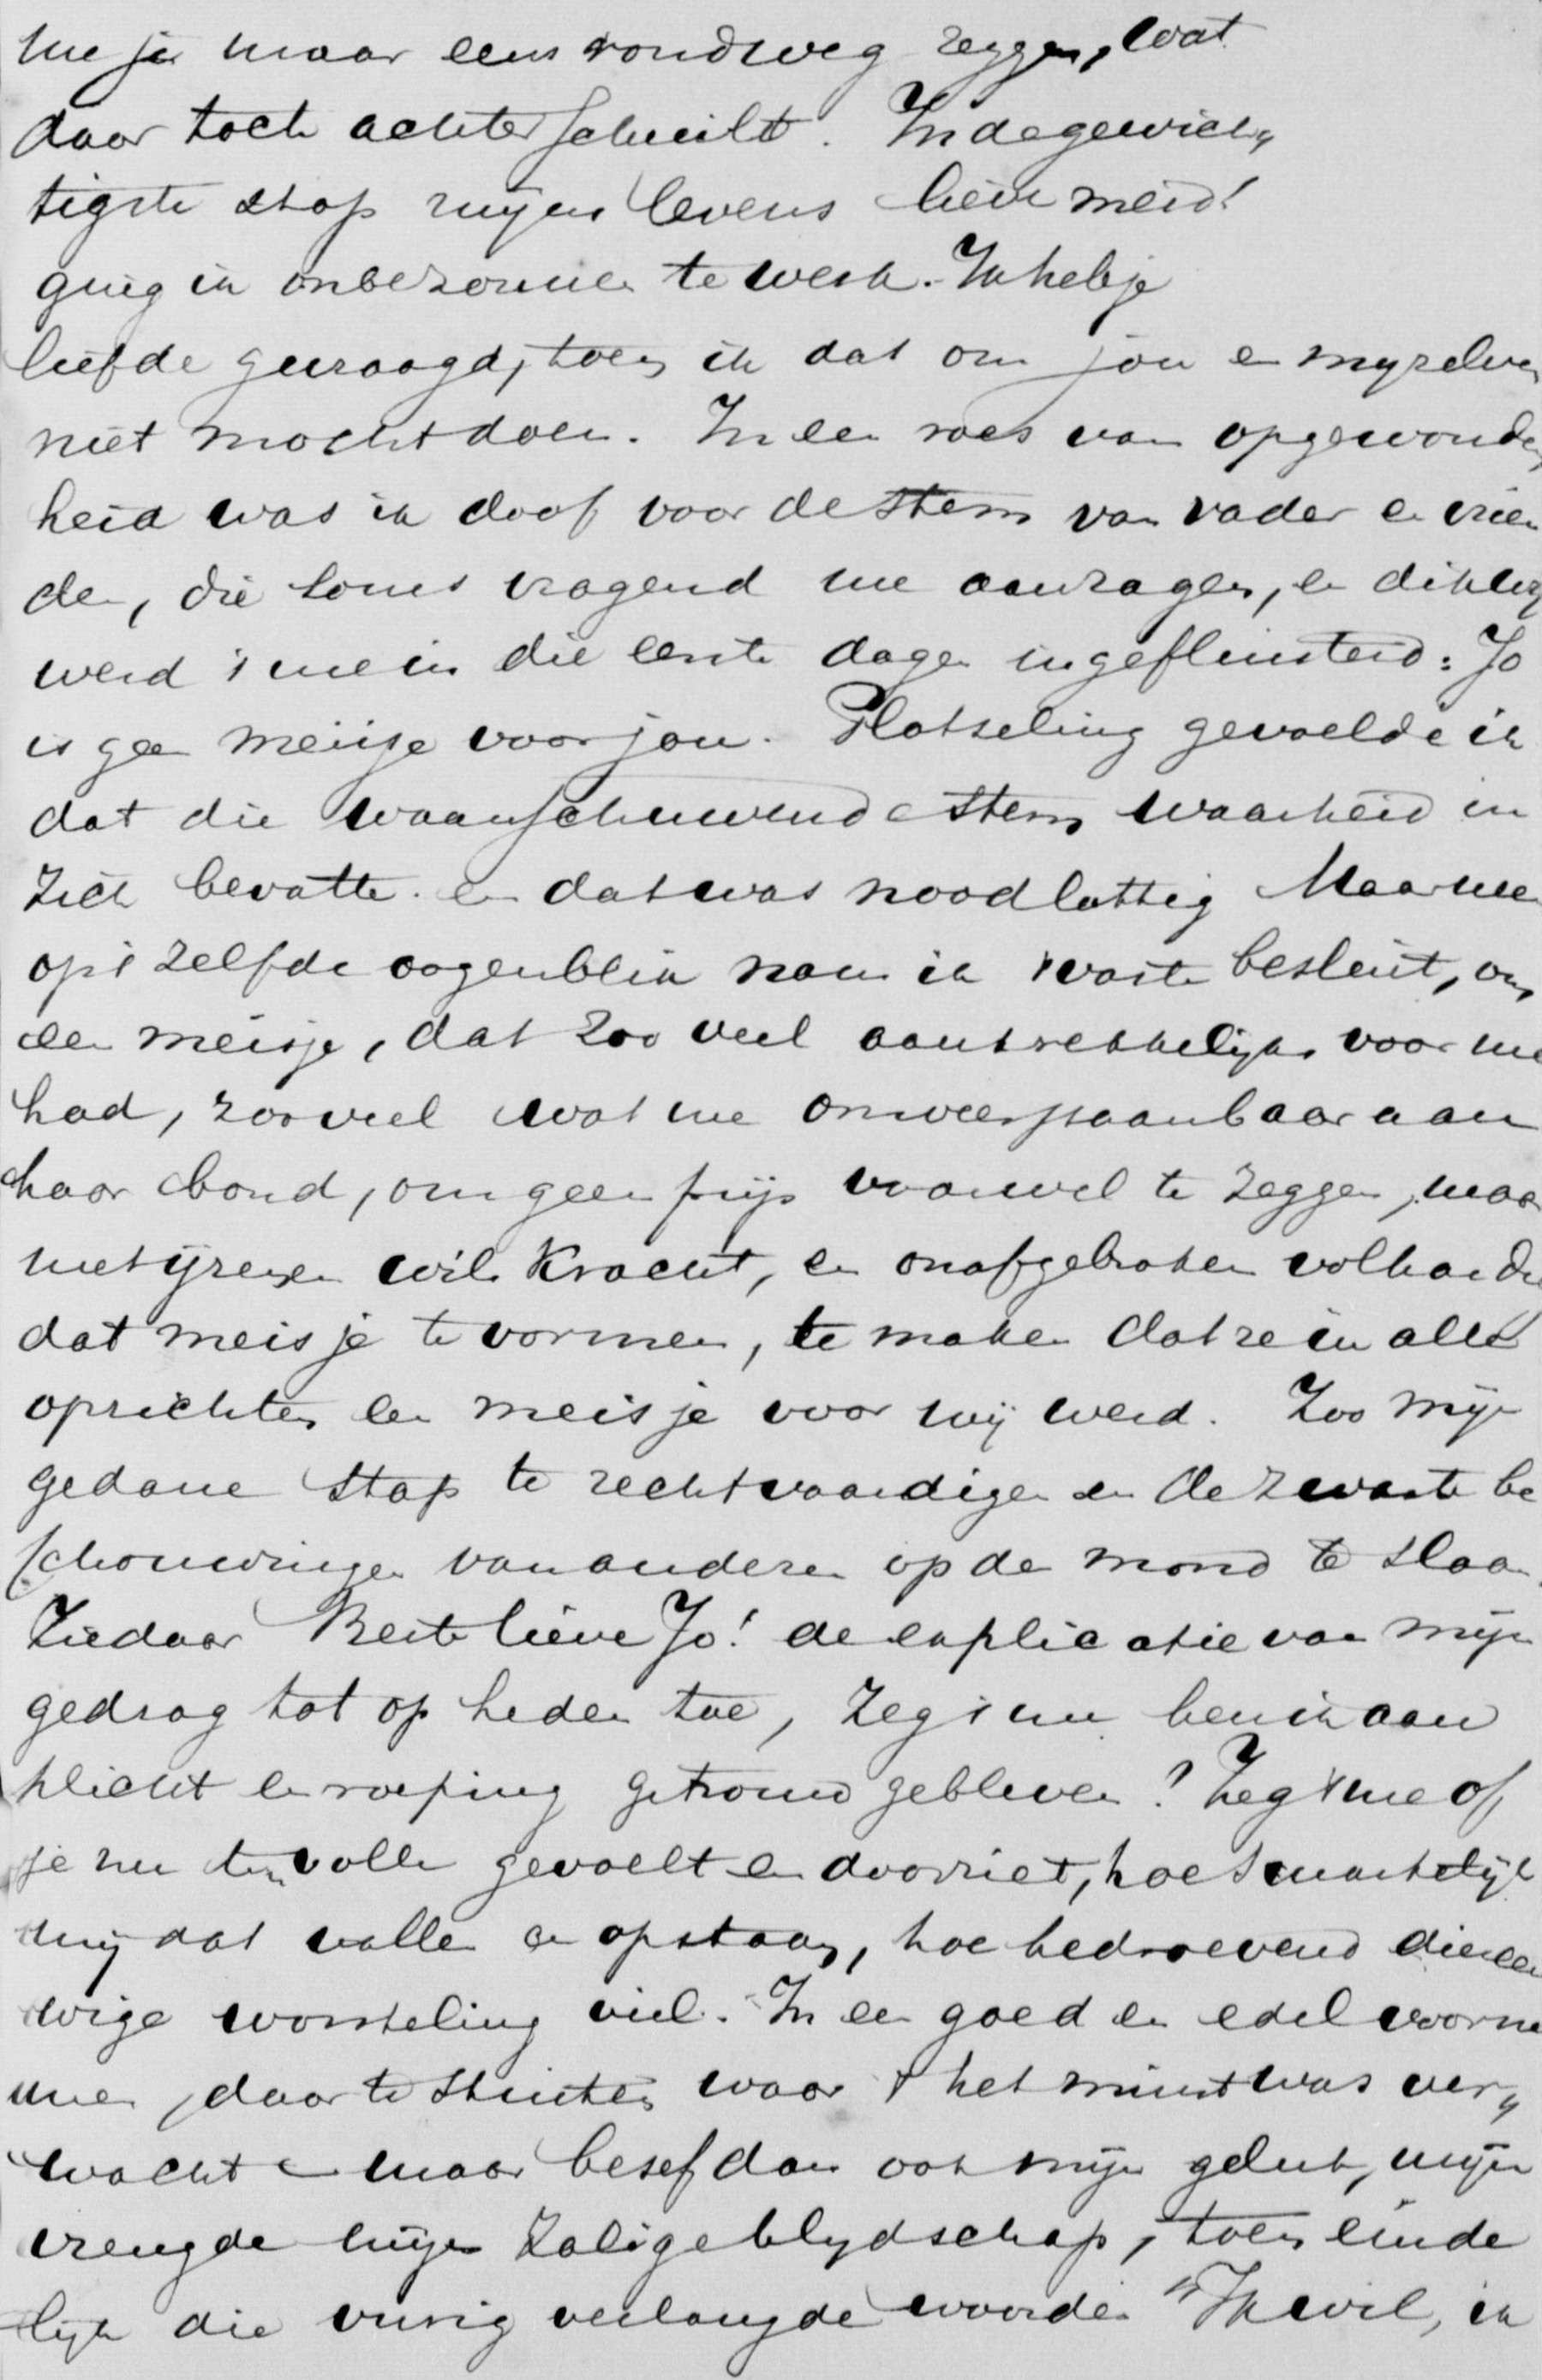 me je maar eens rondweg zeggen, wat
daar toch achter schuilt. In de gewich„
tigste stap mijns levens lieve meid!
ging ik onbezonnen te werk. Ik heb je
liefde gevraagd, toen ik dat om jou en myzelven
niet mocht doen. In een roes van opgewonden
heid was ik doof voor de stem van vader en vrien
den, die soms vragend me aanzagen, en dikwerf
werd 't me in die eerste dagen ingefluisterd: Jo
is geen meisje voor jou. Plotseling gevoelde ik
dat die waarschuwende stem waarheid in
zich bevatte. en dat was noodlottig Maar
op 't zelfde oogenblik nam ik 't vaste besluit, om
een meisje, dat zoo veel aantrekkelijks voor me
had, zooveel wat me onweerstaanbaar aan
haar bond, om geen prijs vaarwel te zeggen, maar
met ijzeren wilskracht, en onafgebroken volharden
dat meisje te vormen, te maken dat ze in alle
opzichten een meisje voor mij werd. Zoo mijn
gedane stap te rechtvaardigen en de zwarte be
schouwingen van anderen op de mond te slaan.
Ziedaar Beste lieve Jo! de explicatie van mijn
gedrag tot op heden toe, zeg 't me ben ik aan
plicht en roeping getrouw gebleven? Zeg 't me of
je nu ten volle gevoelt en doorziet, hoe smartelijk
mij dat vallen en opstaan, hoe bedroevend die eeu
wige worsteling viel. In een goed en edel voorne
men, daar te stuiten waar 't het minst was ver„
wacht – maar besef dan ook mijn geluk, mijn
vreugde mijn zalige blydschap, toen einde
lijk die vurig verlangde woorden "Ik wil, ik